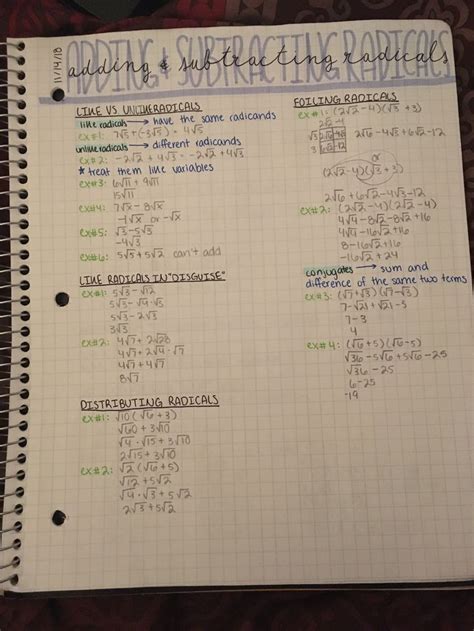 11/14/18
ADDING & SUBTRACTING RADICALS
adding & subtracting radicals
LIKE VS UNLIKE RADICALS
like radicals → have the same radicands
ex #1: 7√5 + (-3√5) = 4√5
unlike radicals → different radicands
ex #2: -2√2 + 4√3 = -2√2 + 4√3
* treat them like variables
ex #3: 6√11 + 9√11
15√11
ex #4: 7√x - 8√x
-1√x or -√x
ex #5: √3 - 5√3
-4√3
ex #6: 5√5 + 5√2 can't add
LIKE RADICALS IN "DISGUISE"
ex #1: 5√3 - √12
5√3 - √4·√3
5√3 - 2√3
3√3
ex #2: 4√7 + 2√28
4√7 + 2√4·√7
4√7 + 4√7
8√7
DISTRIBUTING RADICALS
ex #1: √10(√6 + 3)
√60 + 3√10
√4·√15 + 3√10
2√15 + 3√10
ex #2: √2(√6 + 5)
√12 + 5√2
√4·√3 + 5√2
2√3 + 5√2
FOILING RADICALS
ex #1: (2√2 - 4)(√3 + 3)
2√2 -4
√3
3
2√6 - 4√3 + 6√2 - 12
or
(2√2 - 4)(√3 + 3)
2√6 + 6√2 - 4√3 - 12
ex #2: (2√2 - 4)(2√2 - 4)
4√4 - 8√2 - 8√2 + 16
8 - 16√2 + 16
-16√2 + 24
conjugates → sum and
difference of the same two terms
ex #3: (√7 + √3)(√7 - √3)
7 - √21 + √21 - 3
7 - 3
4
ex #4: (√6 + 5)(√6 - 5)
√36 - 5√6 + 5√6 - 25
√36 - 25
6 - 25
-19